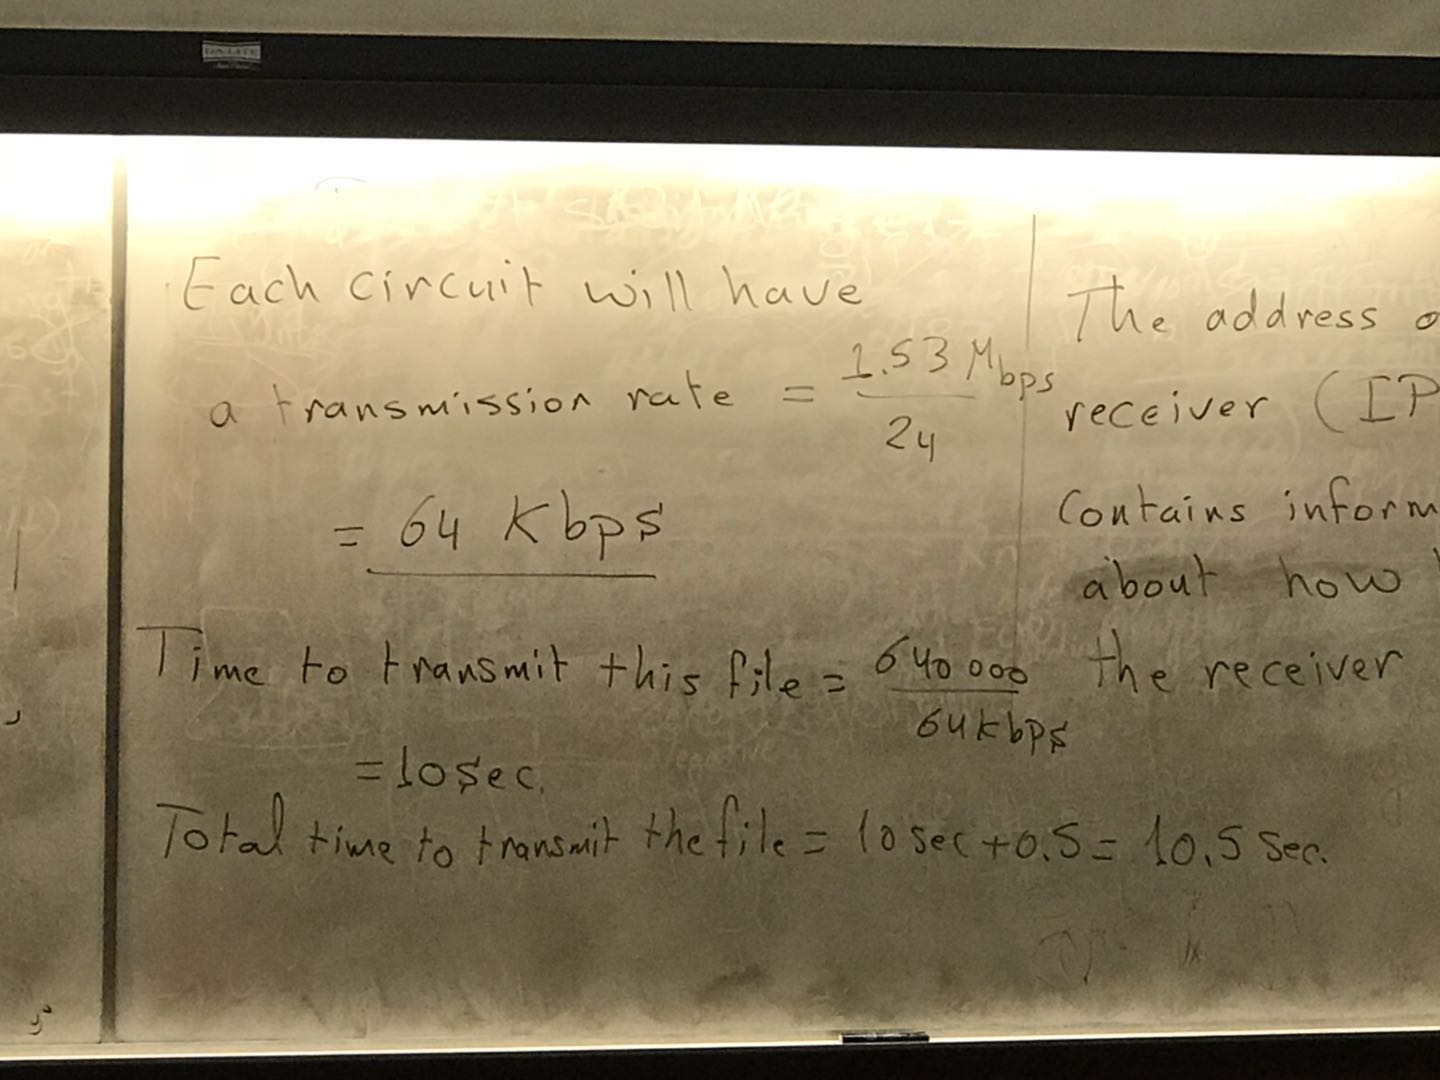 DA-LITE
Each circuit will have
a transmission rate = 1.53 Mbps
24
= 64 Kbps
Time to transmit this file = 640 000
64Kbps
= 10 sec.
Total time to transmit the file = 10 sec + 0.5 = 10.5 Sec.
The address o
receiver (IP
Contains inform
about how
the receiver